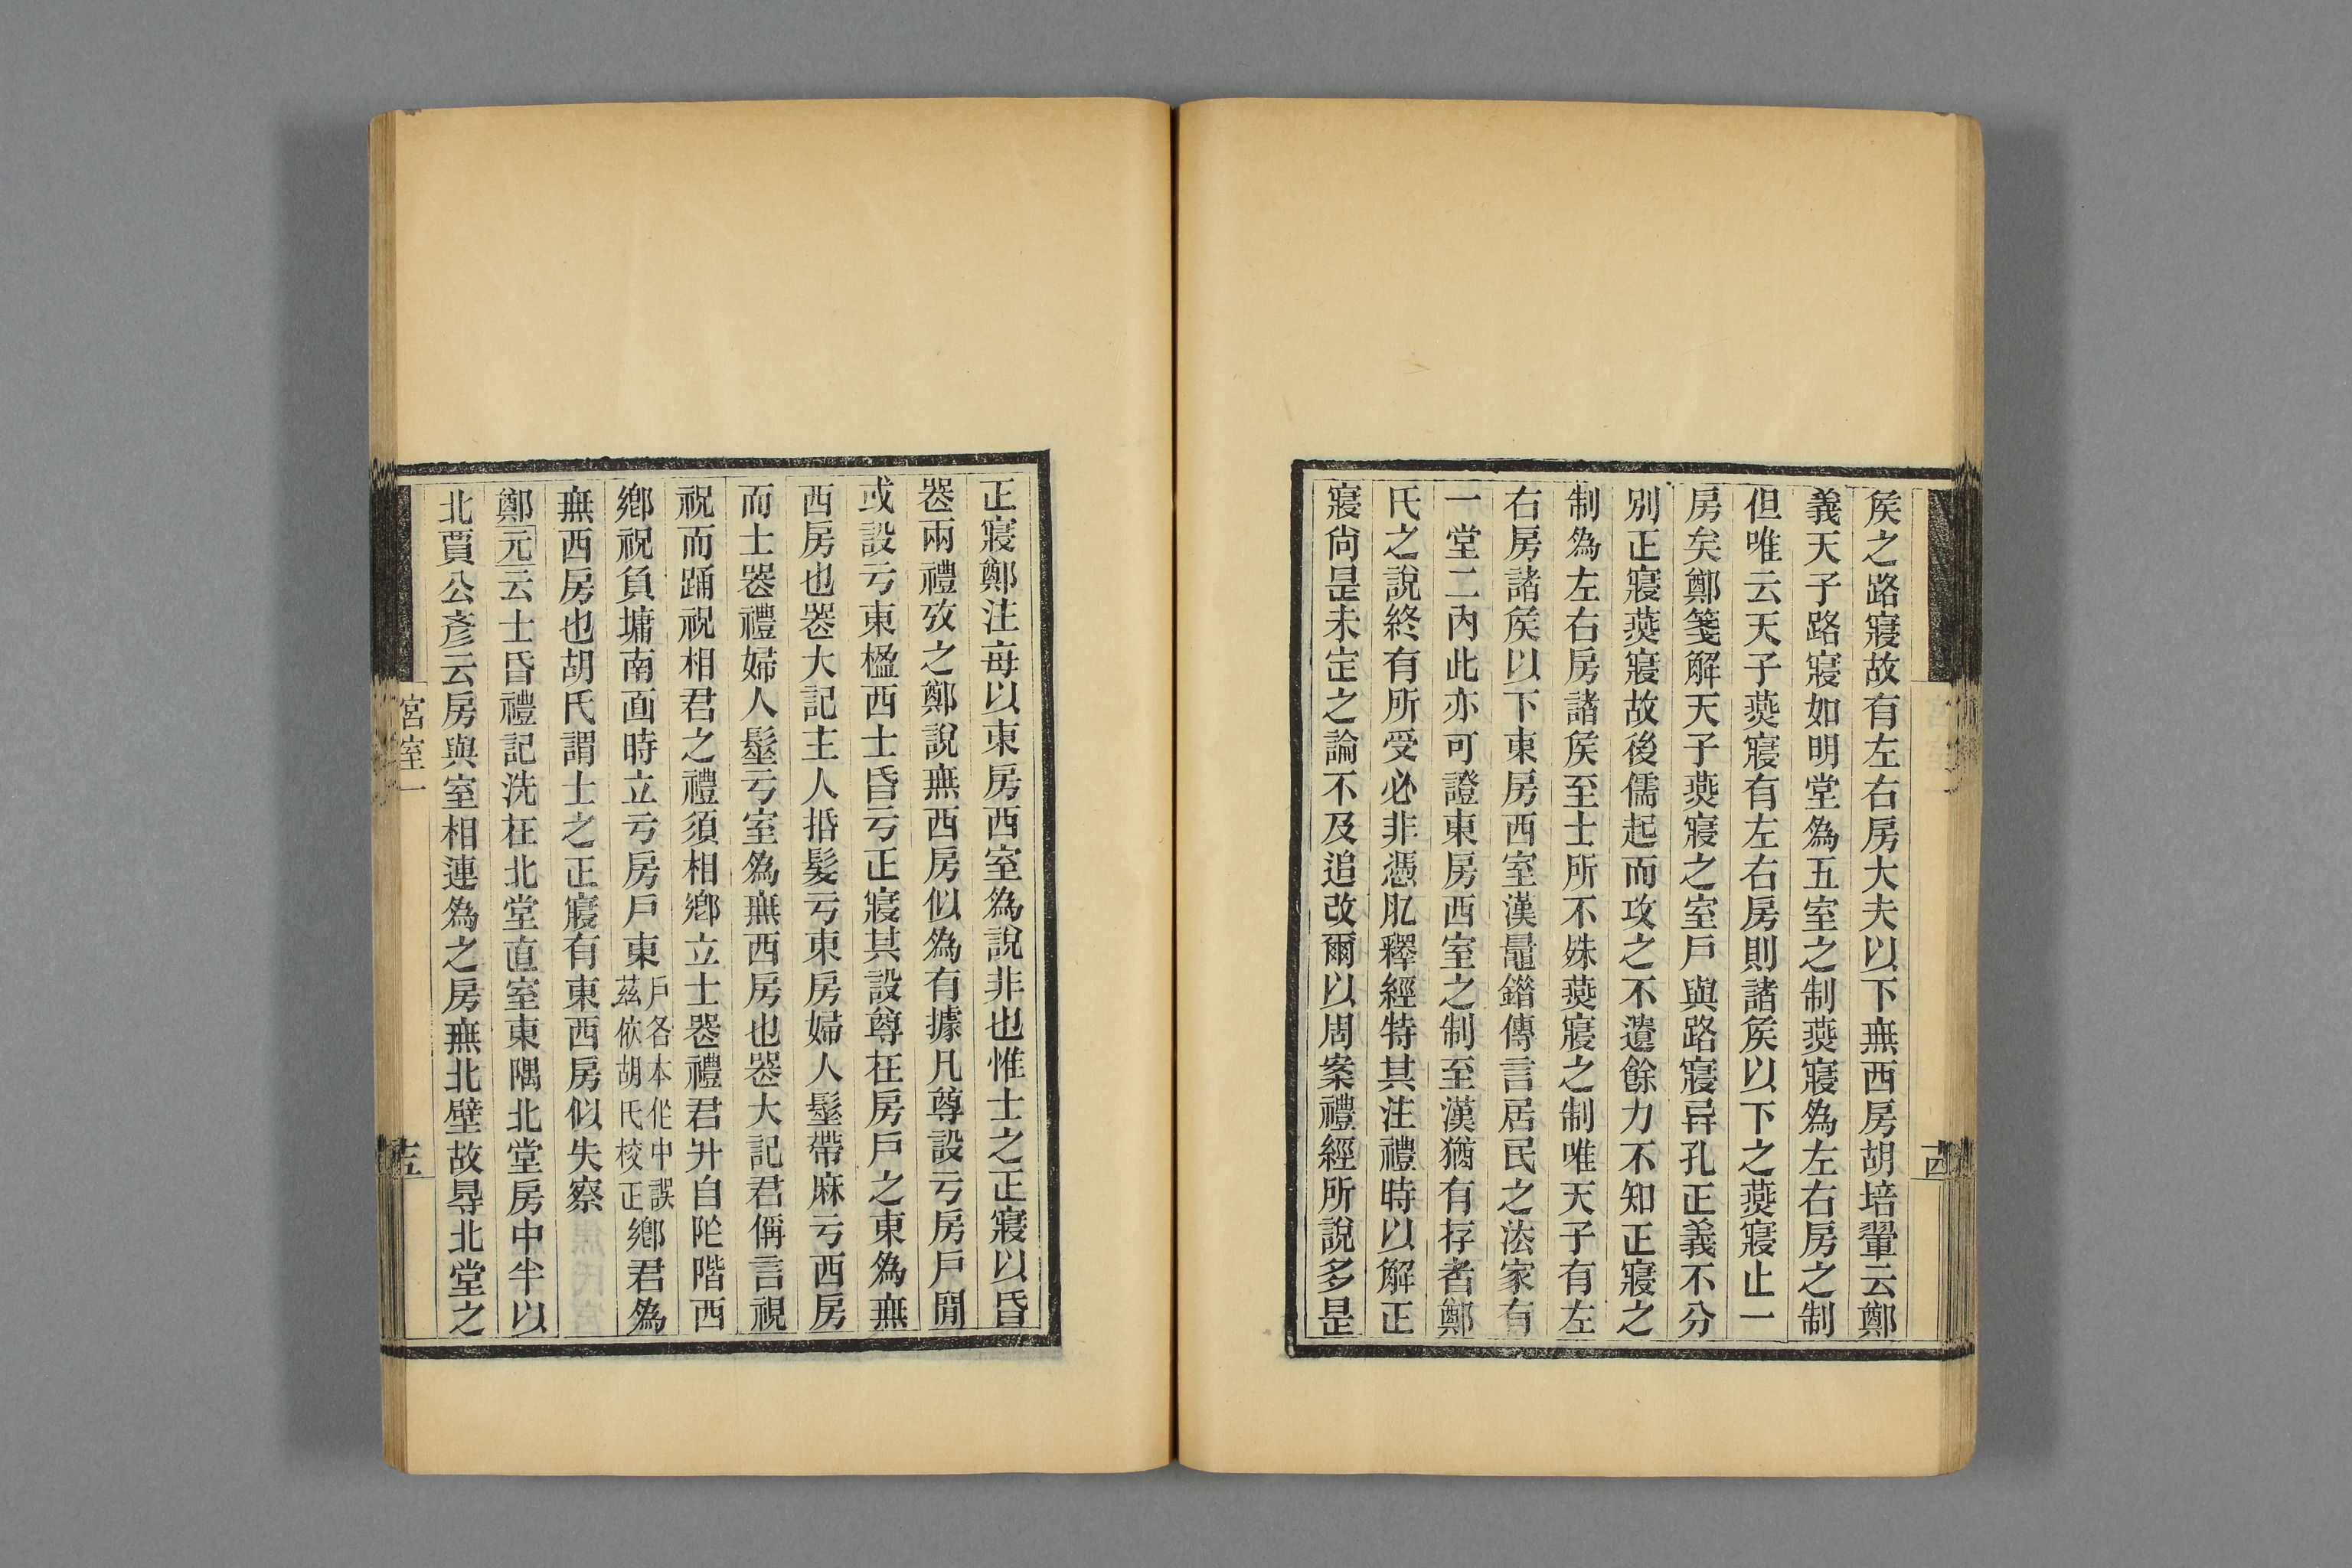 矦之路寢故有左右房大夫以下無西房胡培翬云鄭
義天子路寢如明堂為五室之制燕寢為左右房之制
但唯云天子燕寢有左右房則諸矦以下之燕寢止一
房矣鄭箋解天子燕寢之室戶與路寢异孔正義不分
別正寢燕寢故後儒起而攻之不遺餘力不知正寢之
制為左右房諸矦至士所不殊燕寢之制唯天子有左
右房諸矦以下東房西室漢鼂錯傳言居民之法家有
一堂二內此亦可證東房西室之制至漢猶有存者鄭
氏之說終有所受必非憑肊釋經特其注禮時以解正
寢尙是未定之論不及追改爾以周案禮經所說多是
十四
正寢鄭注每以東房西室為說非也惟士之正寢以昏
喪兩禮攷之鄭說無西房似為有據凡尊設亏房戶閒
或設亏東楹西士昏亏正寢其設尊在房戶之東為無
西房也喪大記主人括髮亏東房婦人髽帶麻亏西房
而士喪禮婦人髽亏室為無西房也喪大記君偁言視
祝而踊祝相君之禮須相鄉立士喪禮君升自阼階西
鄉祝負墉南面時立亏房戶東戶各本作中誤茲依胡氏校正鄉君為
無西房也胡氏謂士之正寢有東西房似失察
鄭元云士昏禮記洗在北堂直室東隅北堂房中半以
北賈公彥云房與室相連為之房無北壁故得北堂之
宮室一
十五